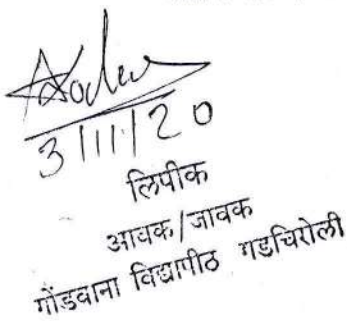 3/11/20
लिपीक
आवक/जावक
गोंडवाना विद्यापीठ गडचिरोली